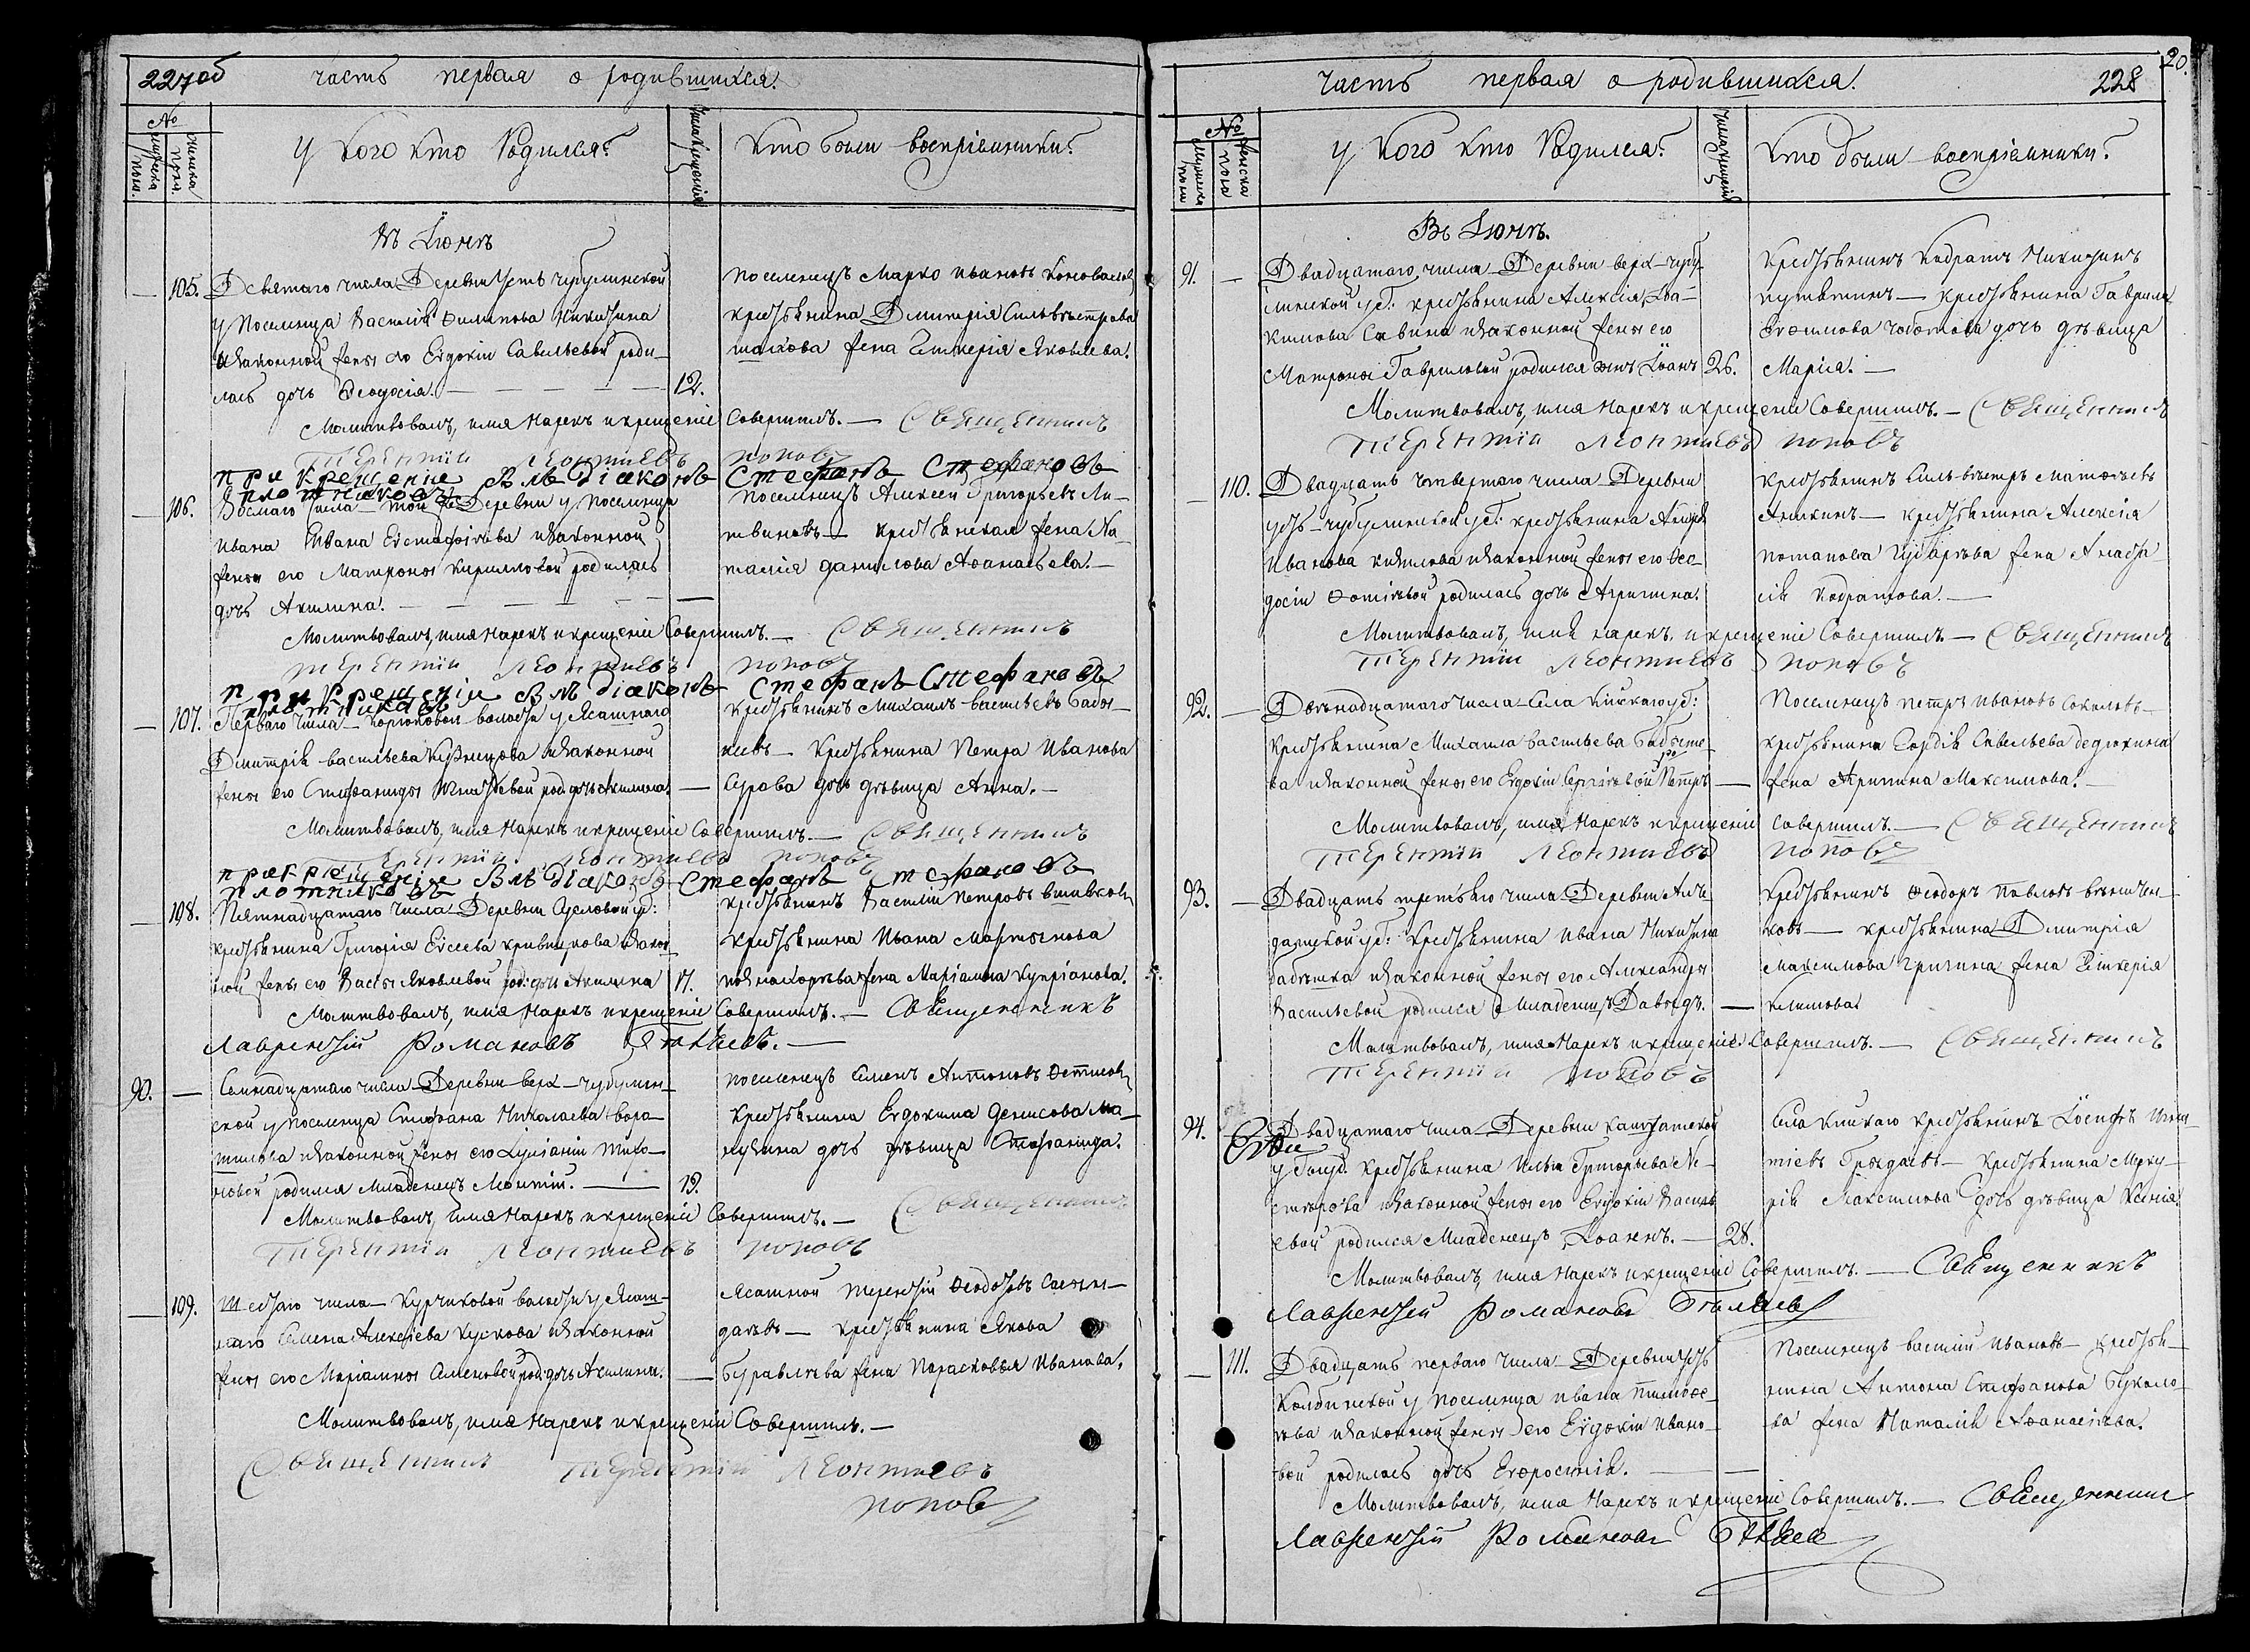 227 об
Часть первая о родившихся.
№
Мужеска пола.
Женска пола.
У кого кто родился?
Числа крещенія
Кто были воспріемники?
Въ Іюнѣ
105. Девятаго числа Деревни Усть чубулинской
у Поселенца Василія Филипова Никитина
и законной жены его Евдокіи Савельевой роди-
лась дочь Феодосія. 12.
Поселенецъ Марко Ивановъ Коноваловъ
крестьянина Димитрія Сильвестрова
жена Гликерія Яковлева.
Молитвовалъ, имя нарекъ и крещеніе Совершилъ. — Священникъ
Терентіи Леонтиевъ Поповъ
при крещеніе былъ діаконъ Стефанъ Стефановъ
Плотниковъ
106. Восмаго числа той же Деревни у поселенца
Ивана Ивана Евстафіева и законной
жены его Матроны Кириловой родилась
дочь Акилина.
Поселенецъ Алексей Григорьевъ Ли-
твиновъ — Крестьянская жена На-
талія Данилова Афанасьева. —
Молитвовалъ, имя нарекъ и крещеніе Совершилъ. — Священникъ
Терентіи Леонтиевъ Поповъ
при крещеніи былъ діаконъ Стефанъ Стефановъ
Плотниковъ
107. Перваго числа — волости у Ясашнаго
Дмитрія Васильева Кузнецова и законной
жены его Стефаниды Игнатьевой род: дочь Акилина. —
Крестьянинъ Михаилъ Васильевъ
Крестьянина Петра Иванова
Сурова дочь дѣвица Анна. —
Молитвовалъ, имя нарекъ и крещеніе Совершилъ. — Священникъ
Терентіи Леонтиевъ Поповъ
при крещеніи былъ діаконъ Стефанъ Стефановъ
Плотниковъ
108. Пятнадцатаго числа Деревни Сусловой у:
крестьянина Григорія Евсеева Кривцова и закон-
ной жены его Вассы Яковлевой род: дочь Акилина 17.
Крестьянинъ Василій Петровъ
Крестьянина Ивана Мартынова
жена Маріамна Купріанова.
Молитвовалъ, имя нарекъ и крещеніе Совершилъ. — Священникъ
Лаврентій Романовъ
90. — Семнадцатаго числа Деревни верх-чубулин-
ской у поселенца Стефана Николаева Воро-
тилова и законной жены его Лукіаніи Тихо-
новой родился Младенецъ Леонтій. — 19.
Поселенецъ Семенъ Антоновъ
Крестьянина Евдокима Денисова Ма-
дочь дѣвица Стефанида.
Молитвовалъ, имя нарекъ и крещеніе Совершилъ. — Священникъ
Терентіи Леонтиевъ Поповъ
109. Шестаго числа — Курчиковой волости у Ясаш-
наго Семена Алексѣева Кускова и законной
жены его Маріамны Семеновой род: дочь Акилина. —
Ясашной Терентій Феодотовъ
— крестьянина Якова
Буравлева жена Парасковья Иванова.
Молитвовалъ, имя нарекъ и крещеніе Совершилъ. —
Священникъ Терентіи Леонтиевъ
Поповъ
20.
Часть первая о родившихся. 228
№
Мужеска пола
Женска пола
У кого кто родился?
Числа крещенія
Кто были воспріемники?
Въ Іюнѣ.
91. — Двадцатаго числа Деревни верх-чубу-
линской у: крестьянина Алексія Іоа-
кимова Савина и законной жены его
Матроны Гавриловой родился сынъ Іоанъ 26.
Крестьянинъ Кодратъ Никитинъ
— крестьянина Гаврила
Евфимова дочь дѣвица
Марія. —
Молитвовалъ, имя нарекъ и крещеніе Совершилъ. — Священникъ
Терентіи Леонтиевъ Поповъ
110. Двадцать четвертаго числа Деревни
усть-чубулинской у: крестьянина Андрея
Иванова и законной жены его Фео-
досіи Фотіевой родилась дочь Агрипина.
Крестьянинъ Сильвестръ Матвѣевъ
Аникинъ — крестьянина Алексія
Потапова жена Анаста-
сія Кодратова. —
Молитвовалъ, имя нарекъ и крещеніе Совершилъ — Священникъ
Терентіи Леонтиевъ Поповъ
92. — Двѣнадцатаго числа — Села Кіискаго у:
Крестьянина Михаила Васильева
и законной жены его Евдокіи Сергіевой Петръ —
Поселенецъ Петръ Ивановъ Соколовъ —
крестьянина Гордія Савельева Дедюхина
жена Агрипина Максимова. —
Молитвовалъ, имя нарекъ и крещеніе Совершилъ. — Священникъ
Терентіи Леонтиевъ Поповъ
93. — Двадцать третьяго числа Деревни
у: Крестьянина Ивана Никитина
и законной жены его Александры
Васильевой родился Младенецъ Давыдъ. —
Крестьянинъ Феодоръ Павловъ
— крестьянина Димитрія
Максимова жена Гликерія
Климова
Молитвовалъ, имя нарекъ и крещеніе Совершилъ. — Священникъ
Терентіи Поповъ
94. Двадцатаго числа Деревни
крестьянина Ильи Григорьева Не-
стерова и законной жены его Евдокіи Василь-
евой родился Младенецъ Іоаннъ. — 28.
Села Кіискаго крестьянинъ Іосифъ Игна-
тіевъ — крестьянина Мерку-
рія Максимова дочь дѣвица Ксенія.
Молитвовалъ, имя нарекъ и крещеніе Совершилъ. — Священникъ
Лаврентій Романовъ
111. Двадцать перваго числа — Деревни усть
Колбинской у поселенца Ивана Тимофе-
ева и законной жены его Евдокіи Ивано-
вой родилась дочь Евфросинія. —
Поселенецъ Василій Ивановъ — крестья-
нина Антона Стефанова
жена Наталія Афанасіева.
Молитвовалъ, имя нарекъ и крещеніе Совершилъ. — Священникъ
Лаврентій Романовъ